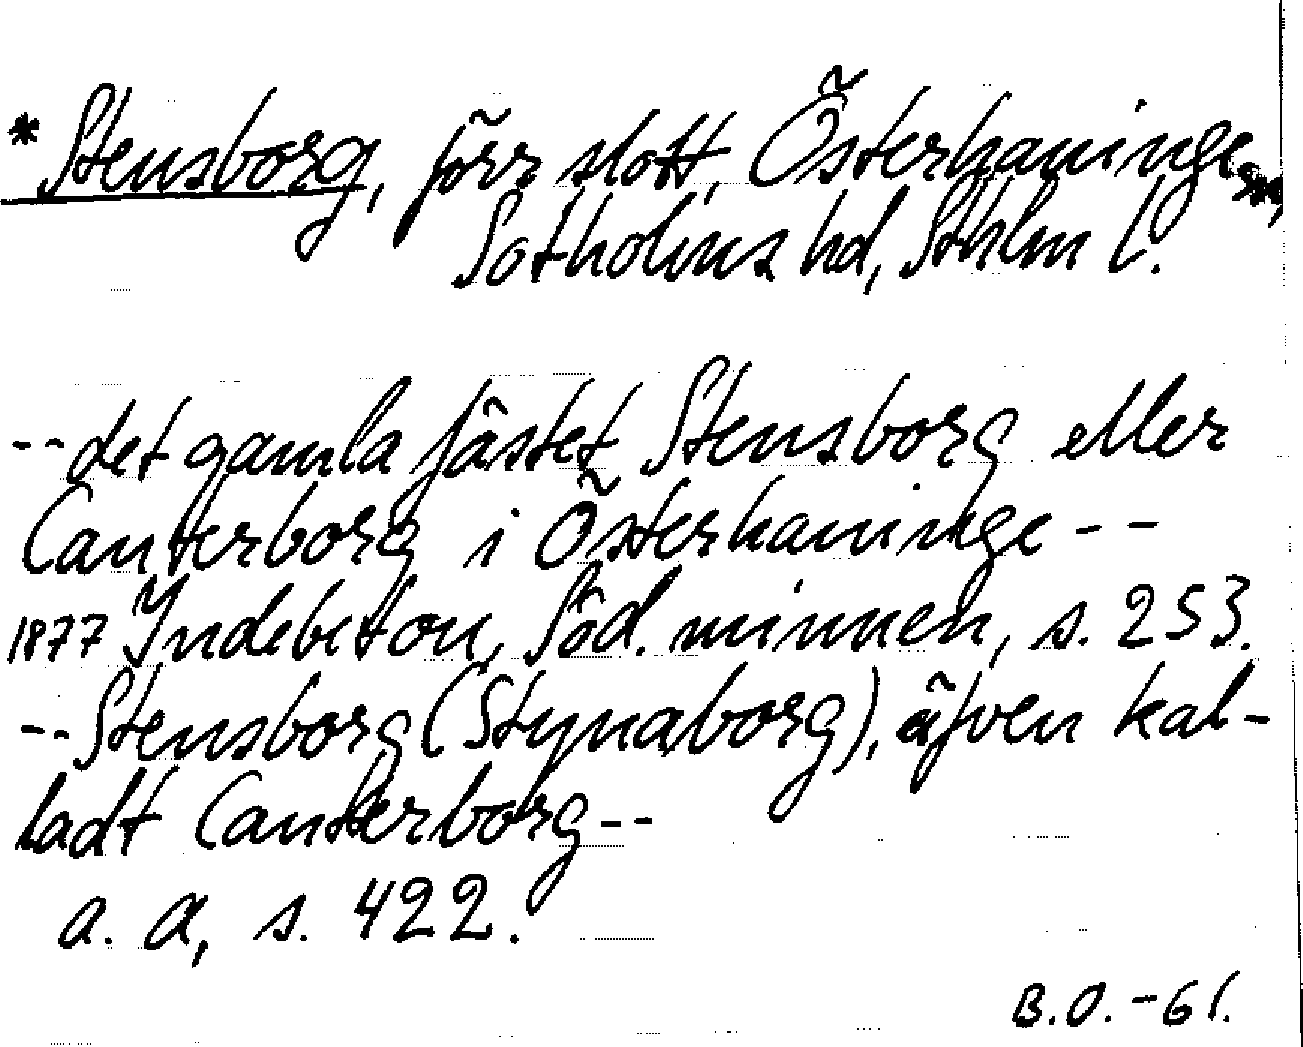 * Stensborg, förr slott, Österhaninge sn,
Sotholms hd, Sthlm l.
-- det gamla fästet Stensborg eller
Canterborg i Österhaninge --
1877 Indebetou, Söd. minnen, s. 253.
-- Stensborg (Stynaborg), äfven kal-
ladt Canterborg --
a. a, s. 422.
B.O. -61.